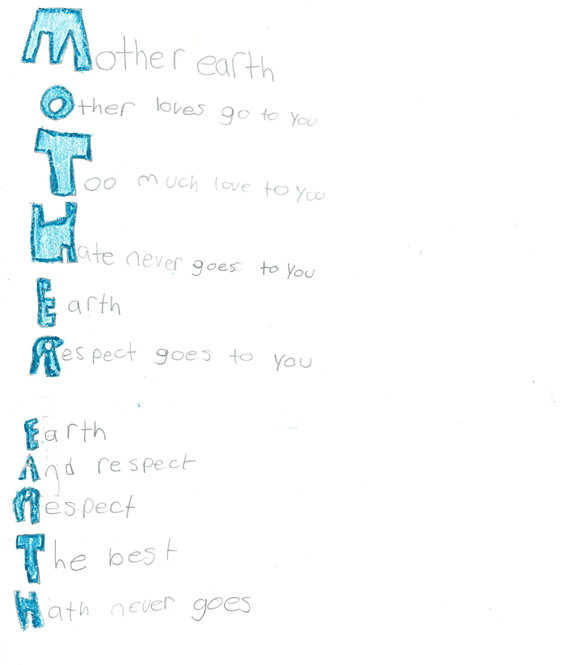 Mother earth
Other loves go to you
Too much love to you
Hate never goes to you
Earth
Respect goes to you
Earth
And respect
Respect
The best
Hath never goes